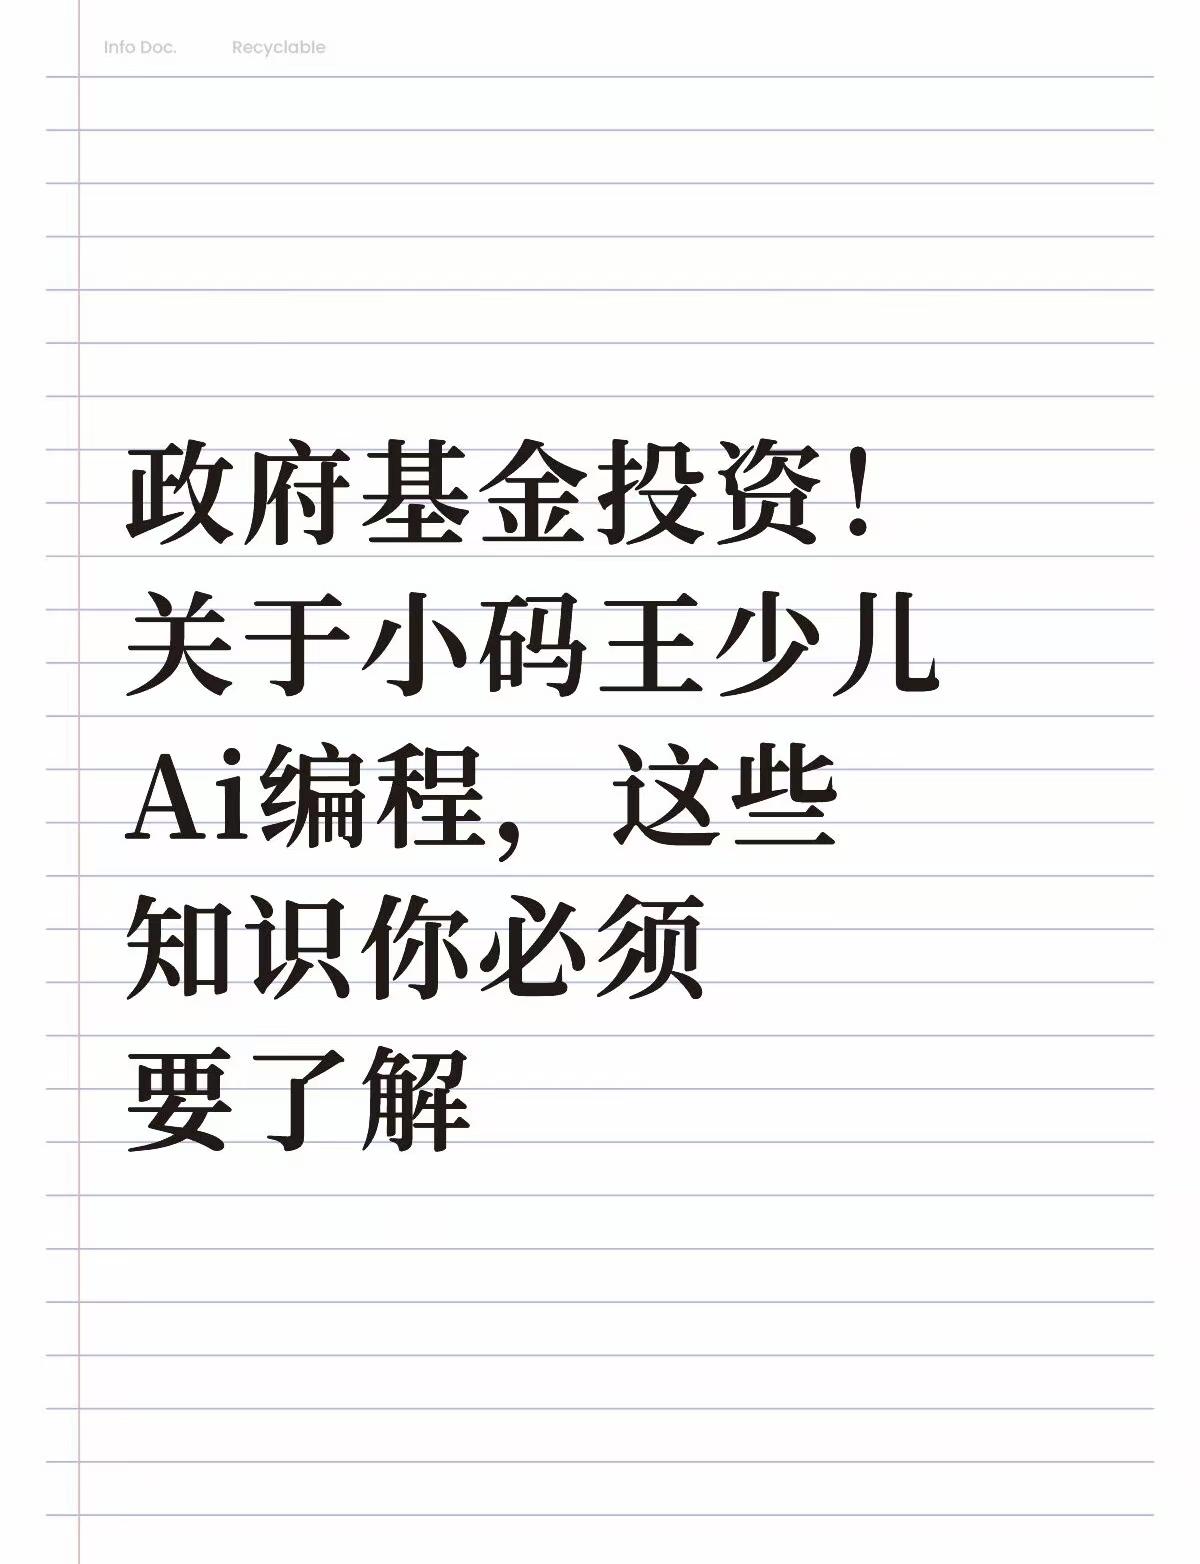 Info Doc. Recyclable
政府基金投资！
关于小码王少儿
Ai编程，这些
知识你必须
要了解